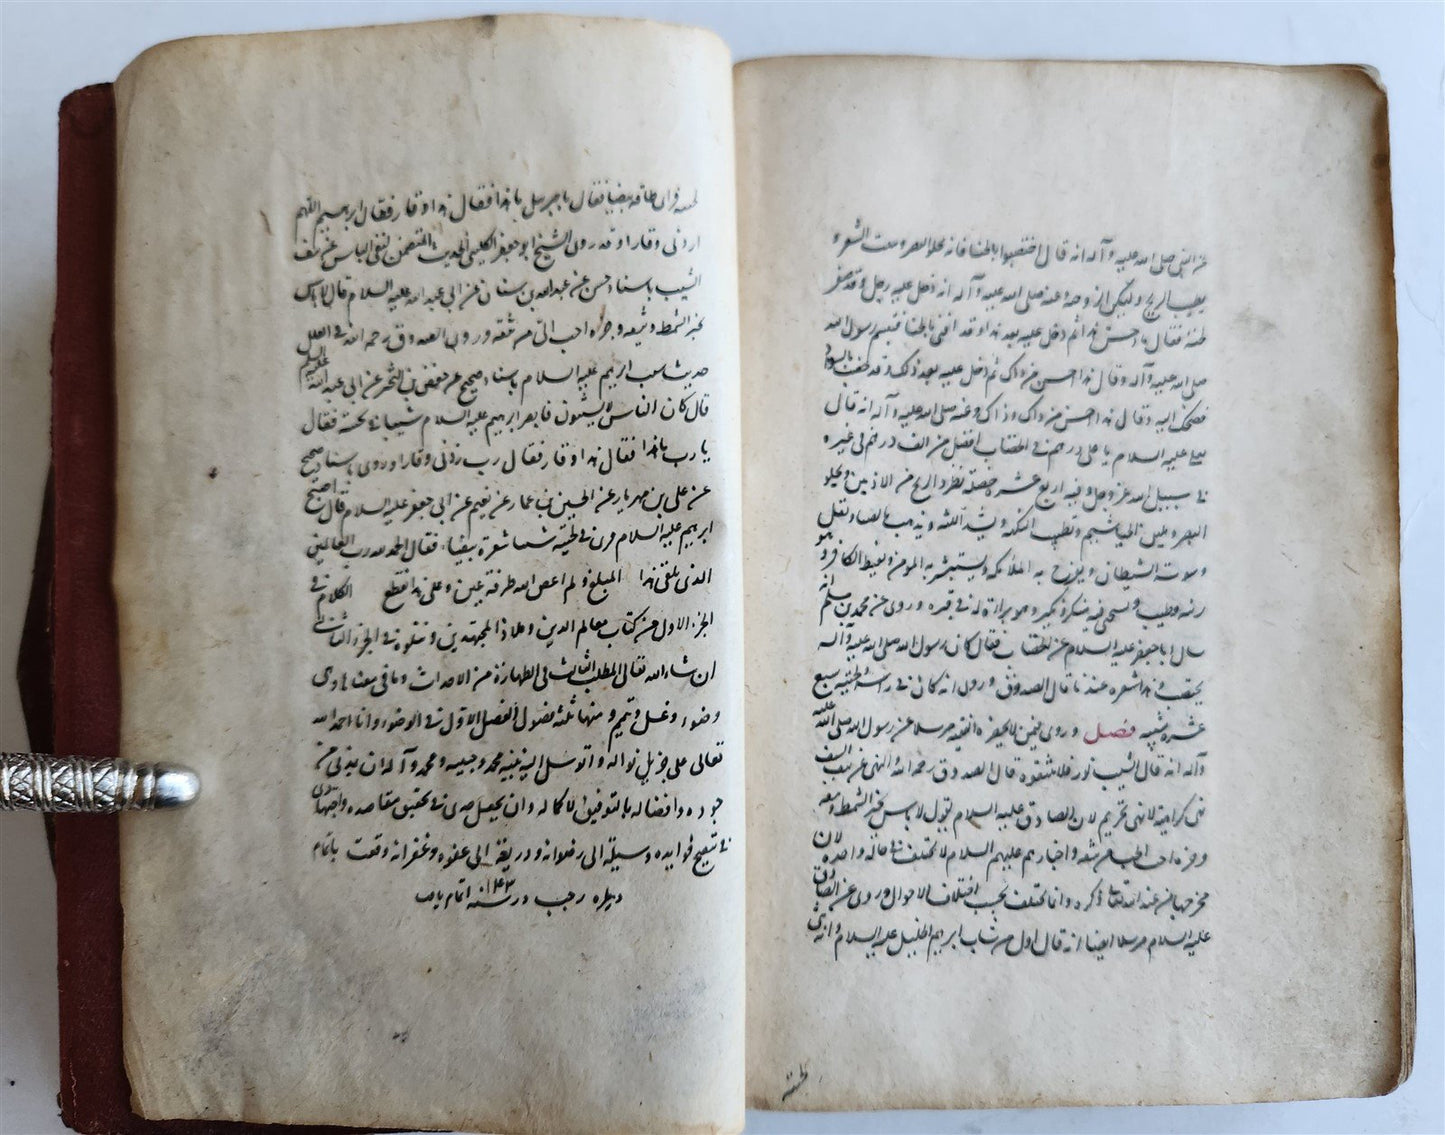 عن النبي صلى الله عليه وآله انه قال اختضبوا بالحنا فانه يجلو البصر وينبت الشعر و
يطيب الريح ويسكن الزوجة وعنه صلى الله عليه وآله انه دخل عليه رجل وقد صفر
لحيته فقال ما احسن هذا ثم دخل عليه بعد هذا وقد اقنى بالحنا فتبسم رسول الله
صلى الله عليه وآله وقال هذا احسن من ذاك ثم دخل عليه بعد ذلك وقد خضب بالسواد
فضحك اليه وقال هذا احسن من ذاك وذاك وعنه صلى الله عليه وآله انه قال
لعلي عليه السلام يا علي درهم في الخضاب افضل من الف درهم في غيره
في سبيل الله عز وجل وفيه اربع عشرة خصلة يطرد الريح من الاذنين ويجلو
البصر ويلين الخياشيم ويطيب النكهة ويشد اللثة ويذهب بالضنا ويقل
وسوسة الشيطان ويفرح به الملائكة ويستبشر به المؤمن ويغيظ الكافر وهو
زينة وطيب ويستحيي منه منكر ونكير وهو براءة له في قبره وروي عن محمد بن مسلم انه
سال ابا جعفر عليه السلام عن الخضاب فقال كان رسول الله صلى الله عليه وآله
يختضب وهذا شعره عندنا قال الصدوق وروي انه كان في راسه ولحيته سبع
عشرة شيبة فصل وروي في من لا يحضره الفقيه مرسلا عن رسول الله صلى الله عليه
وآله انه قال الشيب نور فلا تنتفوه قال الصدوق رحمه الله والنهي عن نتف الشيب
نهي كراهية لا نهي تحريم لان الصادق عليه السلام يقول لا باس بجز الشمط ونتفه
وجزه احب الي من نتفه واخبارهم عليهم السلام لا تختلف في حالة واحدة لان
مخرجها من عند الله تعالى ذكره وانما تختلف بحسب اختلاف الاحوال وروي عن الصادق
عليه السلام مرسلا ايضا انه قال اول من شاب ابراهيم الخليل عليه السلام وانه ثنى
لحيته
لحيته فراى طاقة بيضا فقال يا جبرئيل ما هذا فقال هذا وقار فقال ابراهيم اللهم
زدني وقارا وقد روى الشيخ ابو جعفر الكليني الحديث المتضمن لنفي الباس عن نتف
الشيب باسناد حسن عن عبد الله بن سنان عن ابي عبد الله عليه السلام قال لا باس
بجز الشمط ونتفه وجزه احب الي من نتفه وروى الصدوق رحمه الله في العلل
حديث شيب ابراهيم عليه السلام باسناد صحيح عن حفص بن البختري عن ابي عبد الله عليه السلام
قال كان الناس لا يشيبون فابصر ابراهيم عليه السلام شيبا في لحيته فقال
يا رب ما هذا فقال هذا وقار فقال رب زدني وقارا وروى باسناد صحيح
عن علي بن مهزيار عن الحسين بن عمار عن نعيم عن ابي جعفر عليه السلام قال اصبح
ابراهيم عليه السلام فراى في لحيته شيبا شعرة بيضاء فقال الحمد لله رب العالمين
الذي بلغني هذا المبلغ ولم اعص الله طرفة عين وعلى هذا قطع الكلام في
الجزء الاول من كتاب معالم الدين وملاذ المجتهدين ونتلوه في الجزء الثاني
ان شاء الله تعالى المطلب الثالث في الطهارة من الاحداث وما في معناها وهي
وضوء وغسل وتيمم ومنها ثلثة فصول الفصل الاول في الوضوء وانا احمد الله
تعالى على جزيل نواله واتوسل اليه بنبيه محمد وحبيبه ومحمد وآله ان يمدني من
جوده وافضاله بالتوفيق لاكماله وان يجعل جدي في تحقيق مقاصده واجتهادي
في تنقيح فوايده وسيلة الى رضوانه وذريعة الى عفوه وغفرانه وقعت باتمام
ديله رجب در سنه ۱۰۴۳ اتمام يافت